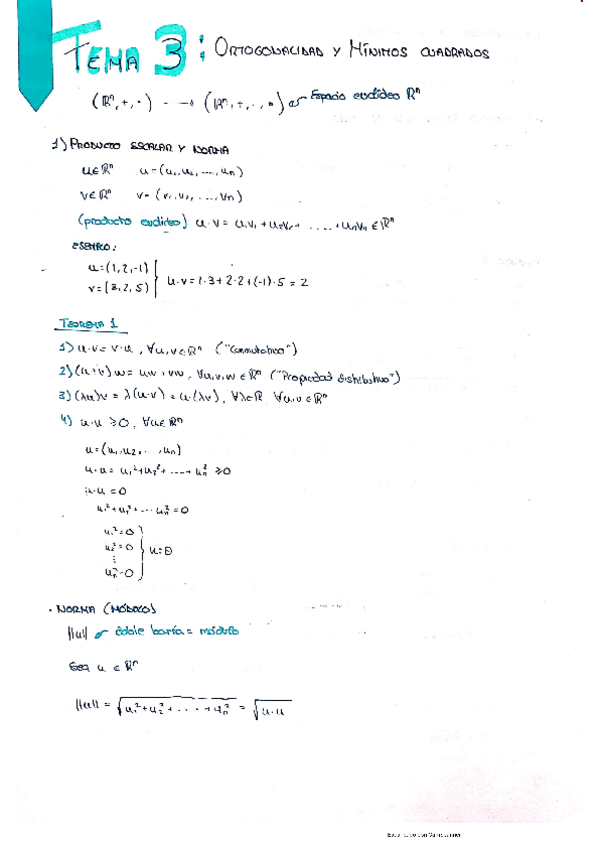 TEMA 3: ORTOGONALIDAD Y MÍNIMOS CUADRADOS
(ℝⁿ, +, ·) ---→ (ℝⁿ, +, ·, •) Espacio euclídeo ℝⁿ
1) PRODUCTO ESCALAR Y NORMA
u∈ℝⁿ u=(u₁,u₂,...,uₙ)
v∈ℝⁿ v=(v₁,v₂,...,vₙ)
(producto euclídeo) u·v = u₁v₁+u₂v₂+.....+uₙvₙ ∈ ℝⁿ
EJEMPLO:
u=(1,2,-1)
v=(3,2,5) } u·v=1·3+2·2+(-1)·5=2
TEOREMA 1
1) u·v=v·u, ∀u,v∈ℝⁿ ("Conmutativa")
2) (u+v)w=uw+vw, ∀u,v,w∈ℝⁿ ("Propiedad distributiva")
3) (λu)v=λ(u·v)=u·(λv), ∀λ∈ℝ ∀u,v∈ℝⁿ
4) u·u≥0, ∀u∈ℝⁿ
u=(u₁,u₂,...,uₙ)
u·u=u₁²+u₂²+....+uₙ²≥0
u·u=0
u₁²+u₂²+...uₙ²=0
u₁²=0
u₂²=0 } u=0
⋮
uₙ²=0
· NORMA (MÓDULO)
||u|| doble barra = módulo
Sea u∈ℝⁿ
||u||=√(u₁²+u₂²+....+uₙ²)=√(u·u)